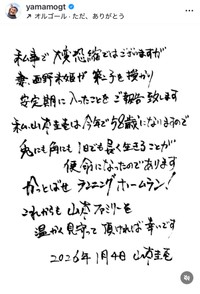 yamamogt
オルゴール・ただ、ありがとう
私事で大変恐縮ではございますが
妻、西野未姫が第二子を授かり
安定期に入ったことをご報告致します
私、山本圭壱は、今年で58歳になりますので
兎にも角にも1日でも長く生きることが
使命になったのであります
かっとばせランニングホームラン!
これからも山本ファミリーを
温かく見守って頂ければ幸いです
2026年1月4日 山本圭壱